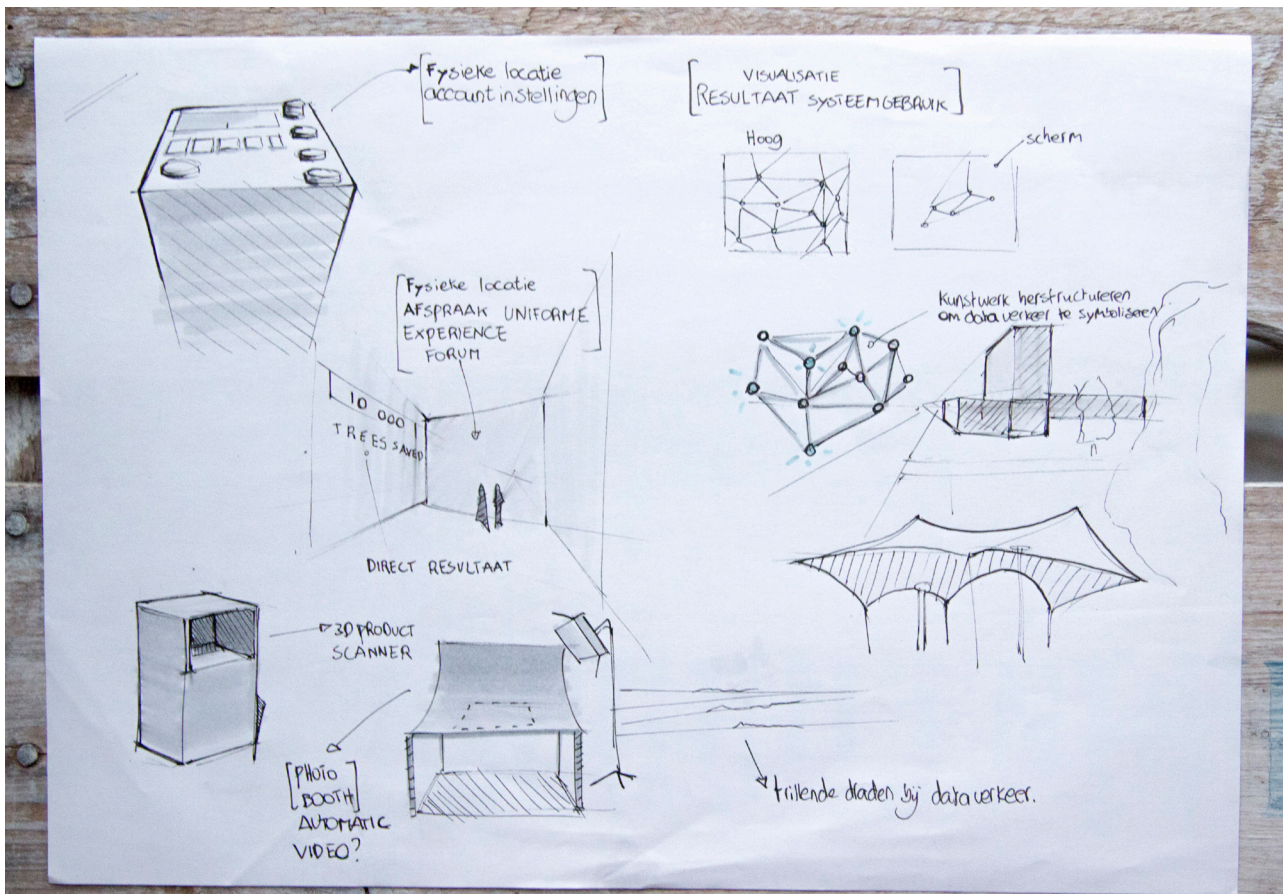 Fysieke locatie
account instellingen
VISUALISATIE
RESULTAAT SYSTEEMGEBRUIK
Hoog
scherm
Fysieke locatie
AFSPRAAK UNIFORME
EXPERIENCE
FORUM
Kunstwerk herstructureren
om data verkeer te symboliseren
10 000
TREES SAVED
DIRECT RESULTAAT
3D PRODUCT
SCANNER
PHOTO
BOOTH
AUTOMATIC
VIDEO?
trillende draden bij dataverkeer.